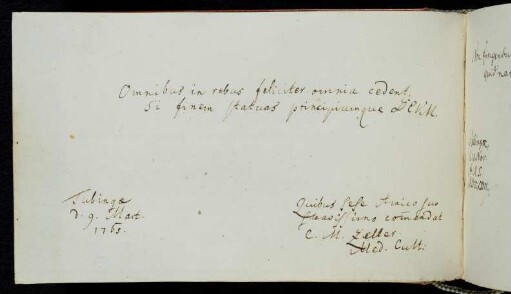 Omnibus in rebus feliciter omnia cedent,
Si finem statuas principiumque DEUM.
Tubingæ
d. 9. Mart.
1765.
Quibus sese Amico suo
suavissimo comendat
C. M. Zeller
Med. Cult.